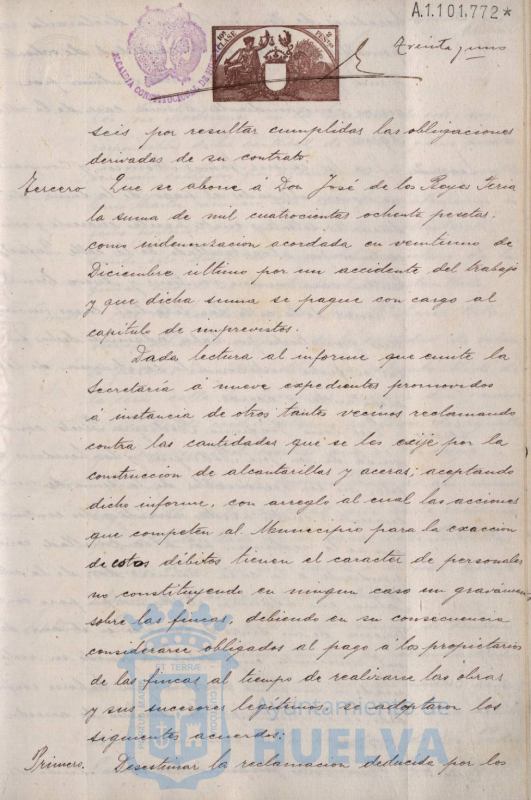 A.1.101.772*
Treinta y uno
ALCALDIA CONSTITUCIONAL DE
10ª CLASE
2 PESETAS
seis por resultar cumplidas las obligaciones
derivadas de su contrato.
Tercero. Que se abone á Don José de los Reyes Feria
la suma de mil cuatrocientas ochenta pesetas,
como indemnización acordada en veintiuno de
Diciembre último por un accidente del trabajo
y que dicha suma se pague con cargo al
capítulo de imprevistos.
Dada lectura al informe que emite la
Secretaría á nueve expedientes promovidos
á instancia de otros tantos vecinos reclamando
contra las cantidades que se les exije por la
construcción de alcantarillas y aceras; aceptando
dicho informe, con arreglo al cual las acciones
que competen al Municipio para la exacción
de estos débitos tienen el caracter de personales
no constituyendo en ningun caso un gravámen
sobre las fincas, debiendo en su consecuencia
considerarse obligados al pago á los propietarios
de las fincas al tiempo de realizarse las obras
y sus sucesores legítimos, se adoptaron los
siguientes acuerdos:
Primero. Desestimar la reclamación deducida por los
ET TERRÆ
PORTUS MARIS
CUSTODIA
Ayuntamiento de
HUELVA